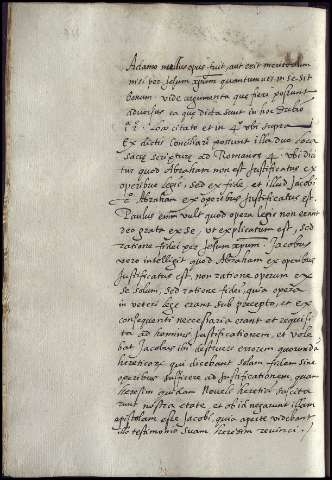 Adamo nullus opus fuit aut erit meritorium
nisi per Jesum xpum quantumuis in se sit
bonum. vide argumenta que fieri possunt
aduersus ea que dicta sunt in hoc dubio
loco citato et in 4. vbi supra
Ex dictis conciliari possunt illa duo loca
sacrę scripturę ad Romanos 4. vbi dici
tur quod Abraham non est justificatus ex
operibus legis, sed ex fide, et illud Jacobi
2. Abraham ex operibus justificatus est.
Paulus enim vult quod opera legis non erant
deo grata ex se, vt explicatum est, sed
ratione fidei per Jesum xpum. Jacobus
vero intelligit quod Abraham ex operibus
justificatus est, non ratione operum ex
se solum, sed ratione fidei, quia opera
in veteri lege erant sub precepto, et ex
consequenti necessaria erant et requisi
ta ad hominis justificationem, et vole
bat Jacobus ibi destruere errorem quorundā
hereticorx qui dicebant solam fidem sine
operibus sufficere ad justificationem, quam
heresim quidam nouelli heretici suscita
runt nostra etate, et ob id negarunt illam
epistolam esse Jacobi, quia aperte videbant
illo testimonio suam heresim reuinci.